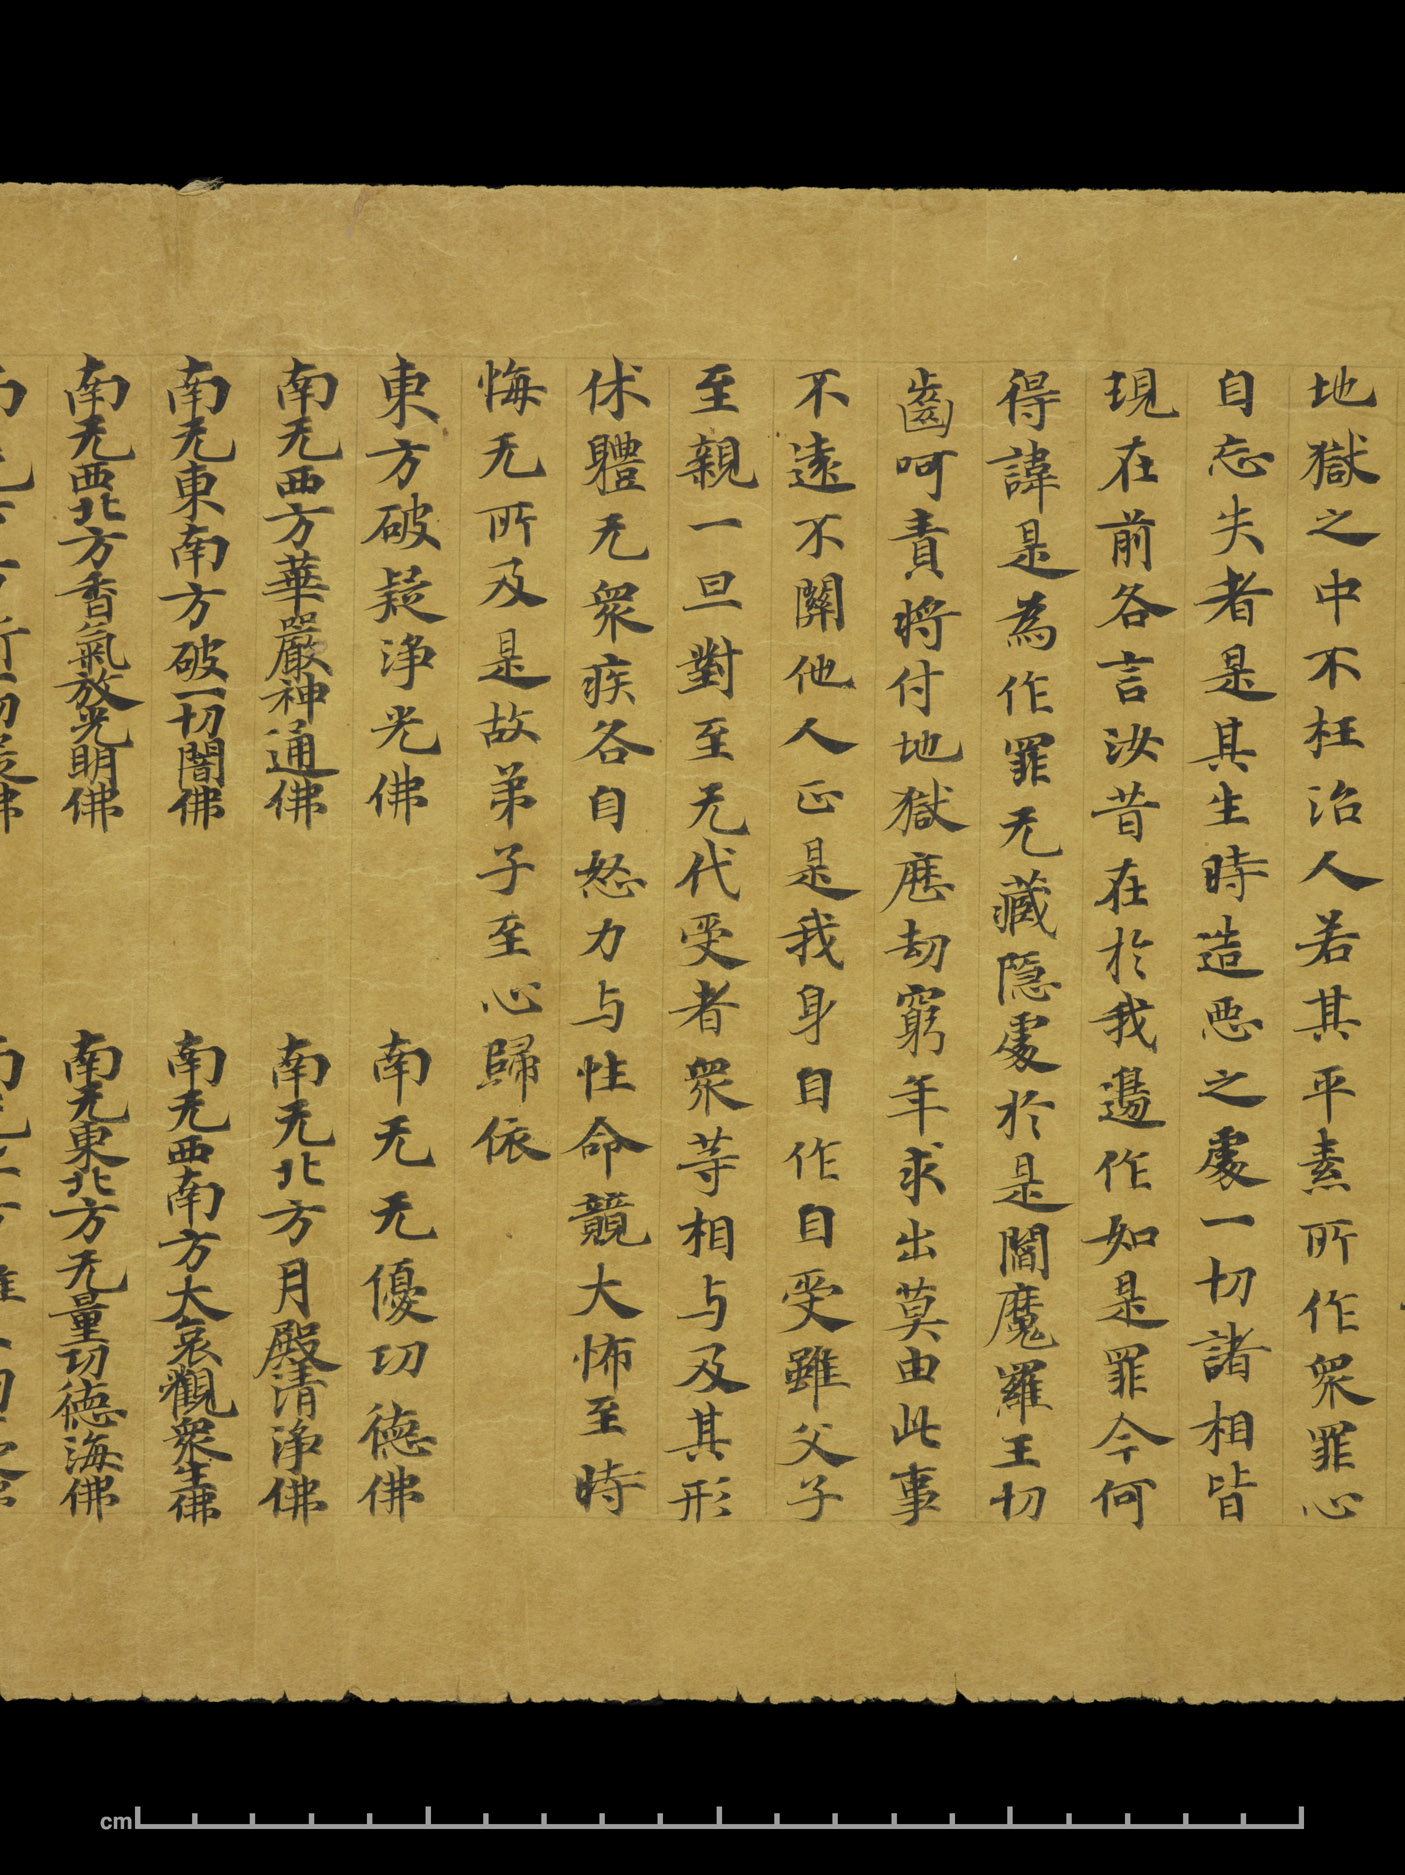 地獄之中不枉治人若其平素所作衆罪心
自忘失者是其生時造惡之處一切諸相皆
現在前各言汝昔在於我邊作如是罪今何
得諱是為作罪无藏隱處於是閻魔羅王切
齒呵責將付地獄歷劫窮年求出莫由此事
不遠不關他人正是我身自作自受雖父子
至親一旦對至无代受者衆等相与及其形
休體无衆疾各自怒力与性命競大怖至時
悔无所及是故弟子至心歸依
東方破疑淨光佛 南无无優功德佛
南无西方華嚴神通佛 南无北方月殿清淨佛
南无東南方破一切闇佛 南无西南方大哀觀衆生佛
南无西北方香氣放光明佛 南无東北方无量功德海佛